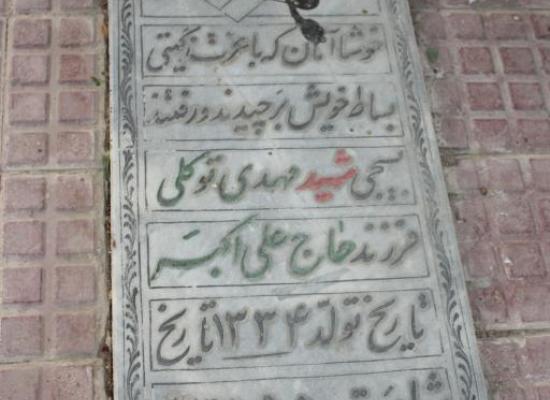 خوشا آنان که با عزت ز گیتی
بساط خویش برچیدند و رفتند
بسیجی شهید مهدی توکلی
فرزند حاج علی اکبر
تاریخ تولد ۱۳۳۴ تاریخ